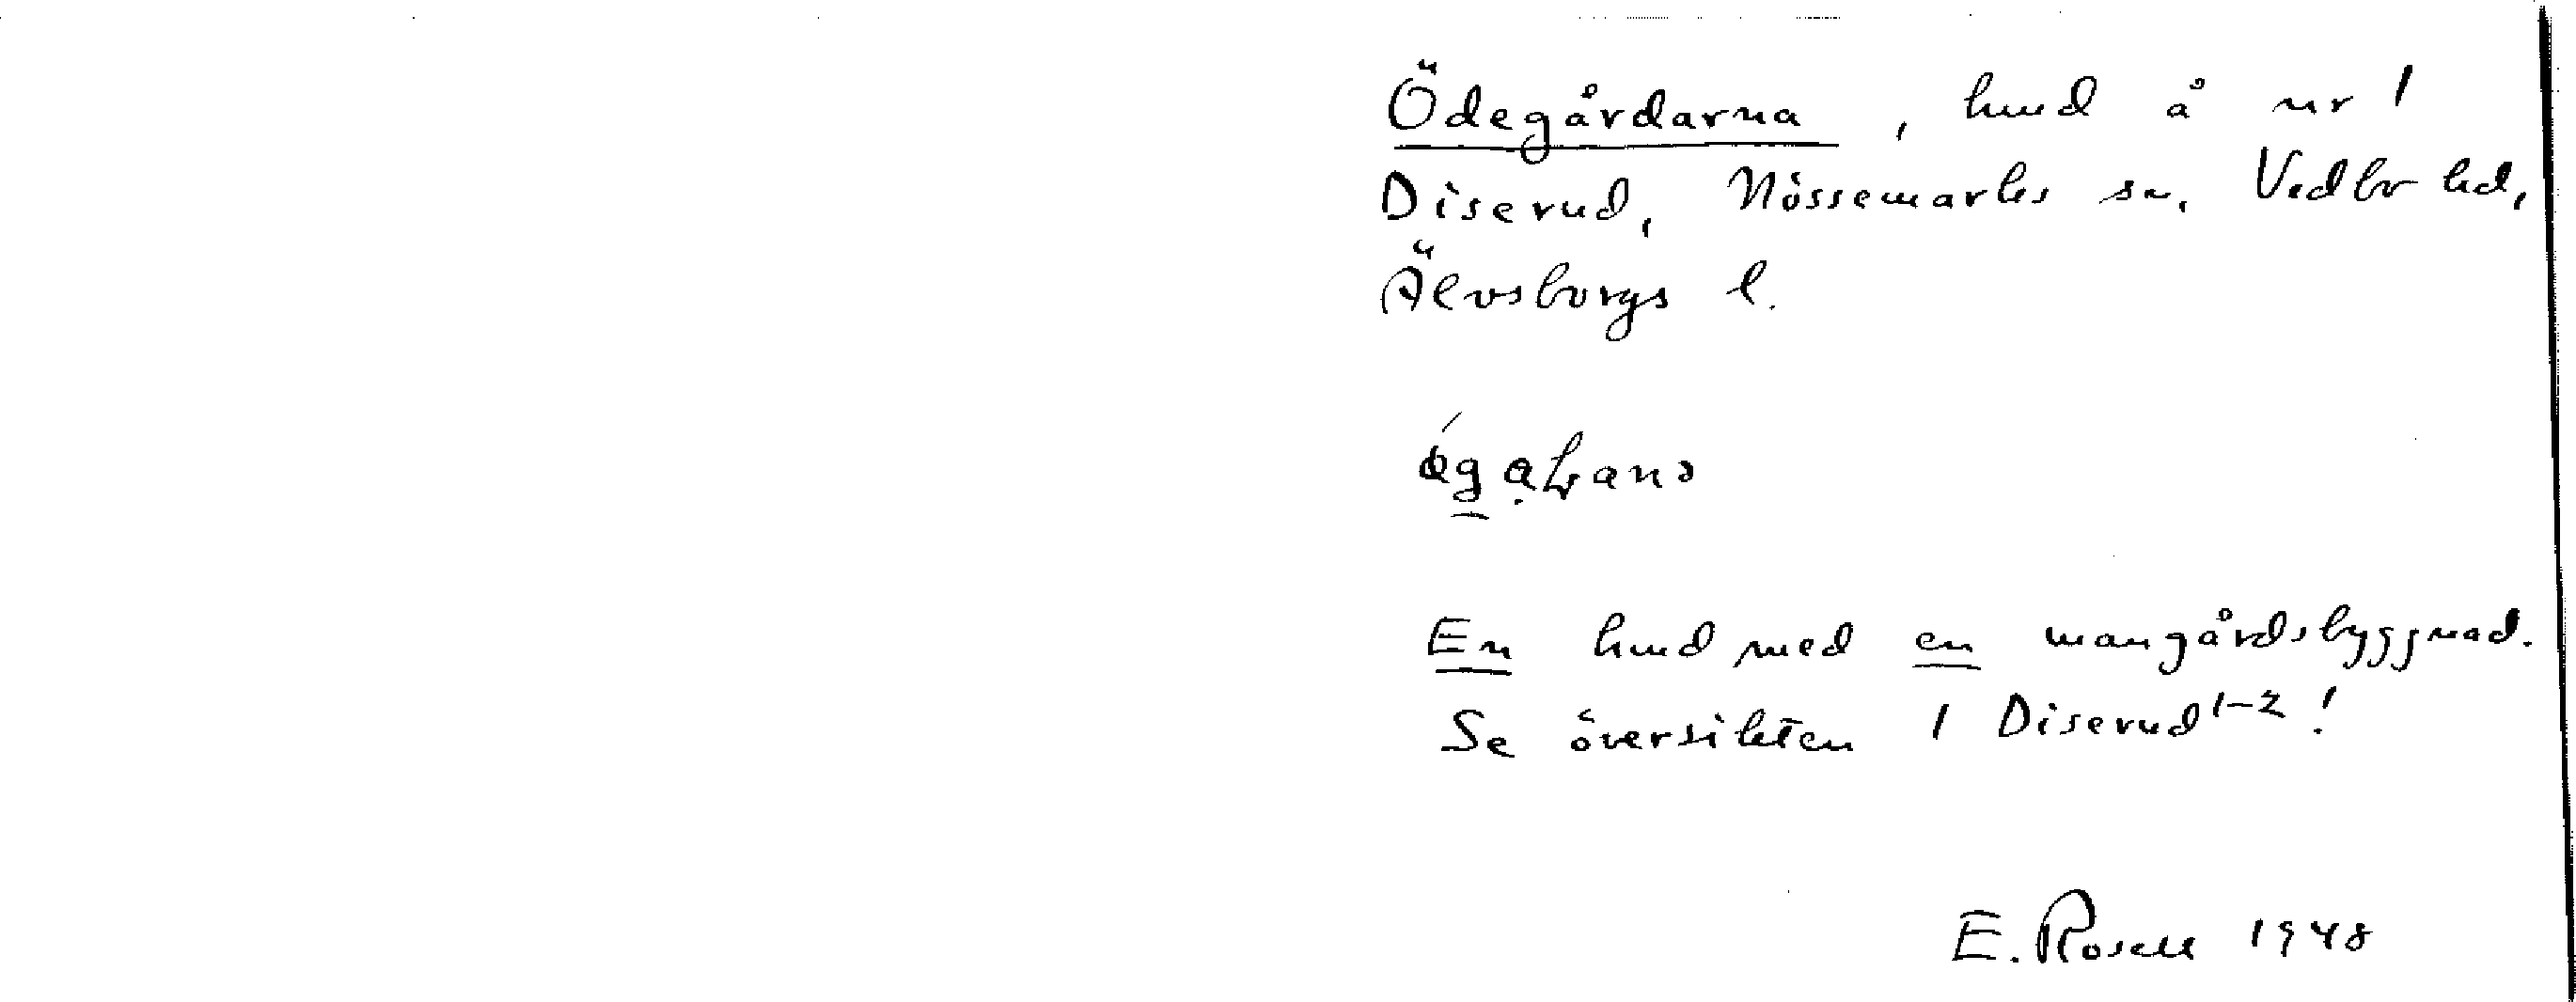 Ödegårdarna, hmd å nr 1
Diserud, Nössemarks sn, Vedbo hd,
Älvsborgs l.
En hmd med en mangårdsbyggnad.
Se översikten 1 Diserud 1-2!
E. Rosell 1948